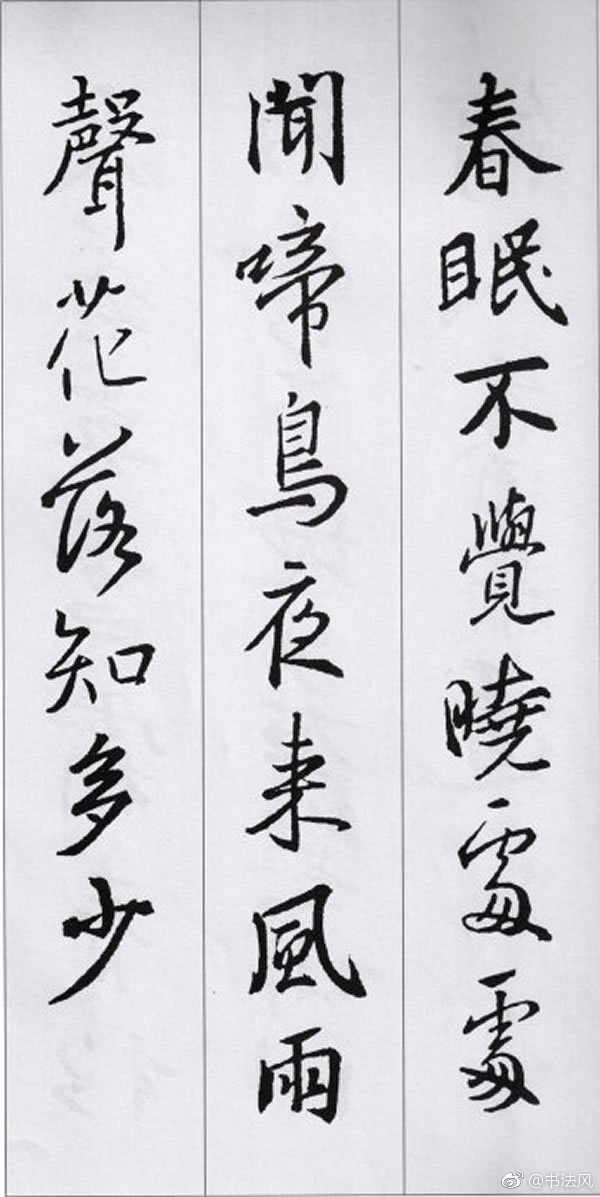 春眠不覺曉處處
聞啼鳥夜来風雨
聲花落知多少
@书法风